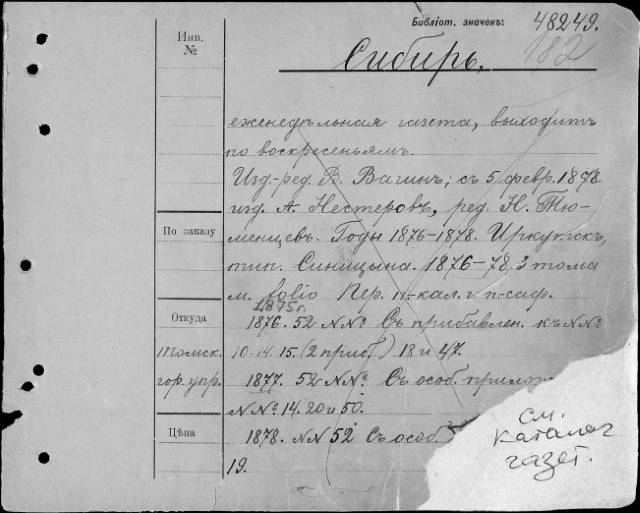 Библіот. значекъ: 48249.
182
Инв. №
Сибирь.
еженедѣльная газета, выходитъ
по воскресеньямъ.
Изд.-ред. В. Вагинъ; съ 5 февр. 1878
изд. А. Нестеровъ, ред. Н. Тю-
менцевъ. Годы 1876–1878. Иркутскъ,
тип. Синицына. 1876–78. 3 тома
м. folio Пер. п.-кал. и п-саф.
1875г.
По заказу
Откуда
Томск.
гор. упр.
Цѣна
1876. 52 NNо Съ прибавлен. къ NNо
10. 14. 15. (2 приб.) 18 и 47.
1877. 52 NNо Съ особ. прилож
NNо 14. 20 и 50.
1878. NN 52 Съ особ.
19.
см.
каталог
газет.